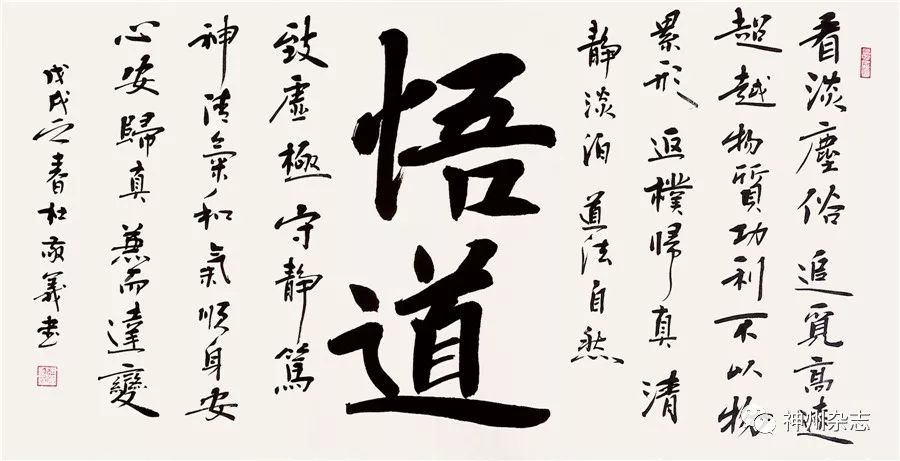 看淡塵俗 追覓高遠
超越物質功利 不以物
累形 返樸帰真 清
静淡泊 道法自然
悟道
致虛極 守静篤
神清氣和氣順身安
心安歸真 兼而達變
戊戌之春杜敬義书
神州杂志